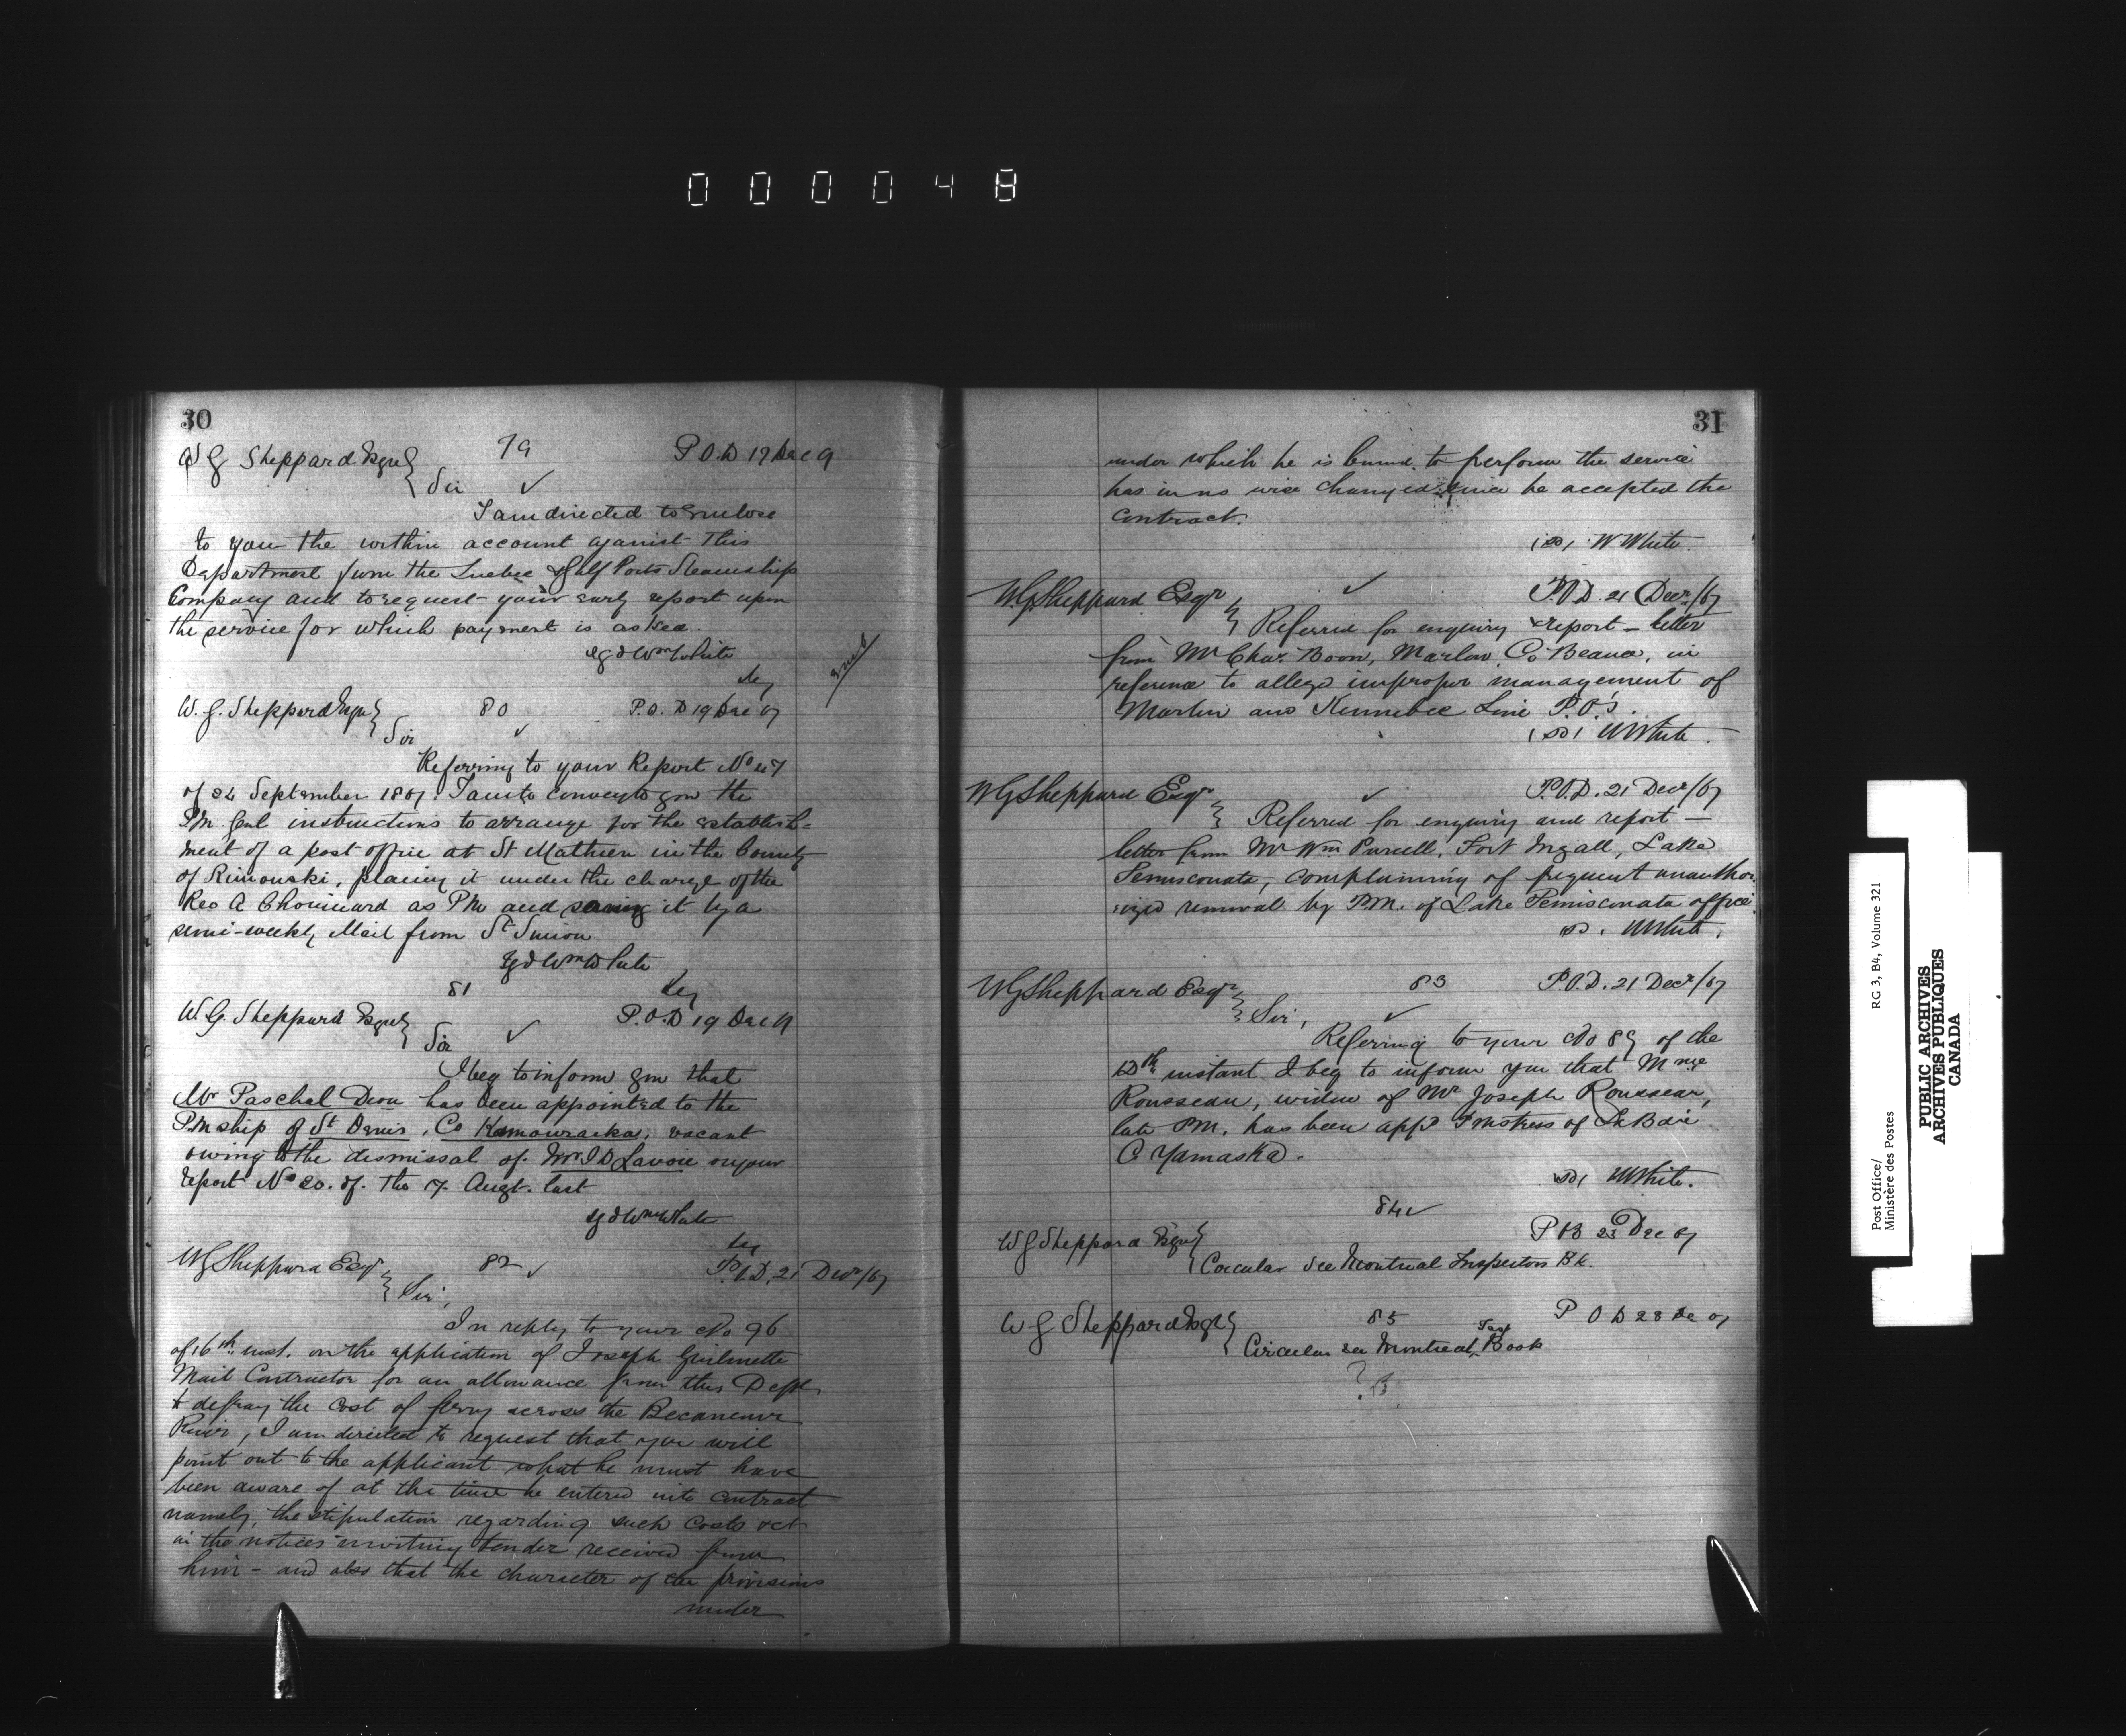 000048
30
W G Sheppard Esqre 79 P.O.D 17 Dec
Sir
I am directed to enclose
to you the within account against this
Department from the Quebec & Gulf Ports Steamship
Company and to request your early report upon
the service for which payment is asked.
sgd Wm White
Secy
W. G. Sheppard Esqre 80 P.O.D 19 Dec 67
Sir
Referring to your Report No 47
of 24 September 1867. I am to convey to you the
P.M. Genl instructions to arrange for the establish=
ment of a post office at St Mathieu in the County
of Rimouski, placing it under the charge of the
Rev A Chouinard as P M and serving it by a
semi-weekly Mail from St Simon
sgd Wm White
Secy
81
W. G. Sheppard Esqre P.O.D 19 Dec
Sir
I beg to inform you that
Mr Paschal Dion has been appointed to the
P.M ship of St Denis, Co Kamouraska, vacant
owing to the dismissal of Mr I D Lavoie on your
report No 20. of. the 7. Augt. last
sgd Wm White
Secy
W G Sheppard Esqr 82 P.O.D, 21 Decr/67
Sir,
In reply to your No 96
of 16th inst. on the application of Joseph Guilmette
Mail Contractor for an allowance from this Dept
to defray the cost of ferry across the Becancour
River, I am directed to request that you will
point out to the applicant what he must have
been aware of at the time he entered into contract
namely, the stipulation regarding such costs
in the notices inviting tender received from
him - and also that the character of the provisions
under
31
under which he is bound to perform the service
has in no wise changed since he accepted the
contract.
W White.
W.G. Sheppard Esqr P.O.D. 21 Decr/67
Referred for enquiry & report - letter
from Mr Chas. Boon, Marlow, Co Beauce, in
reference to allege improper management of
Marlow and Kennebec Line P.O's.
W White.
W G Sheppard Esqr P.O.D. 21 Decr/67
Referred for enquiry and report -
letter from Mr Wm Purcell, Fort Ingall, Lake
Temisconata, complaining of frequent unautho-
rized removal by P.M. of Lake Temisconata office.
W White.
W G Sheppard Esqr 83 P.O.D. 21 Decr/67
Sir,
Referring to your No 89 of the
instant I beg to inform you that Mme
Rousseau, widow of Mr Joseph Rousseau,
late P.M. has been appd Pmstress of La Baie
C Yamaska.
W White.
84
W G Sheppard Esqre P O D 23 Dec 67
Circular see Montreal Inspectors Bk.
W G Sheppard Esqre 85 P O D 28 Dec 67
Circular see Montreal Book
Post Office/ RG 3, B4, Volume 321
Ministère des Postes
PUBLIC ARCHIVES
ARCHIVES PUBLIQUES
CANADA